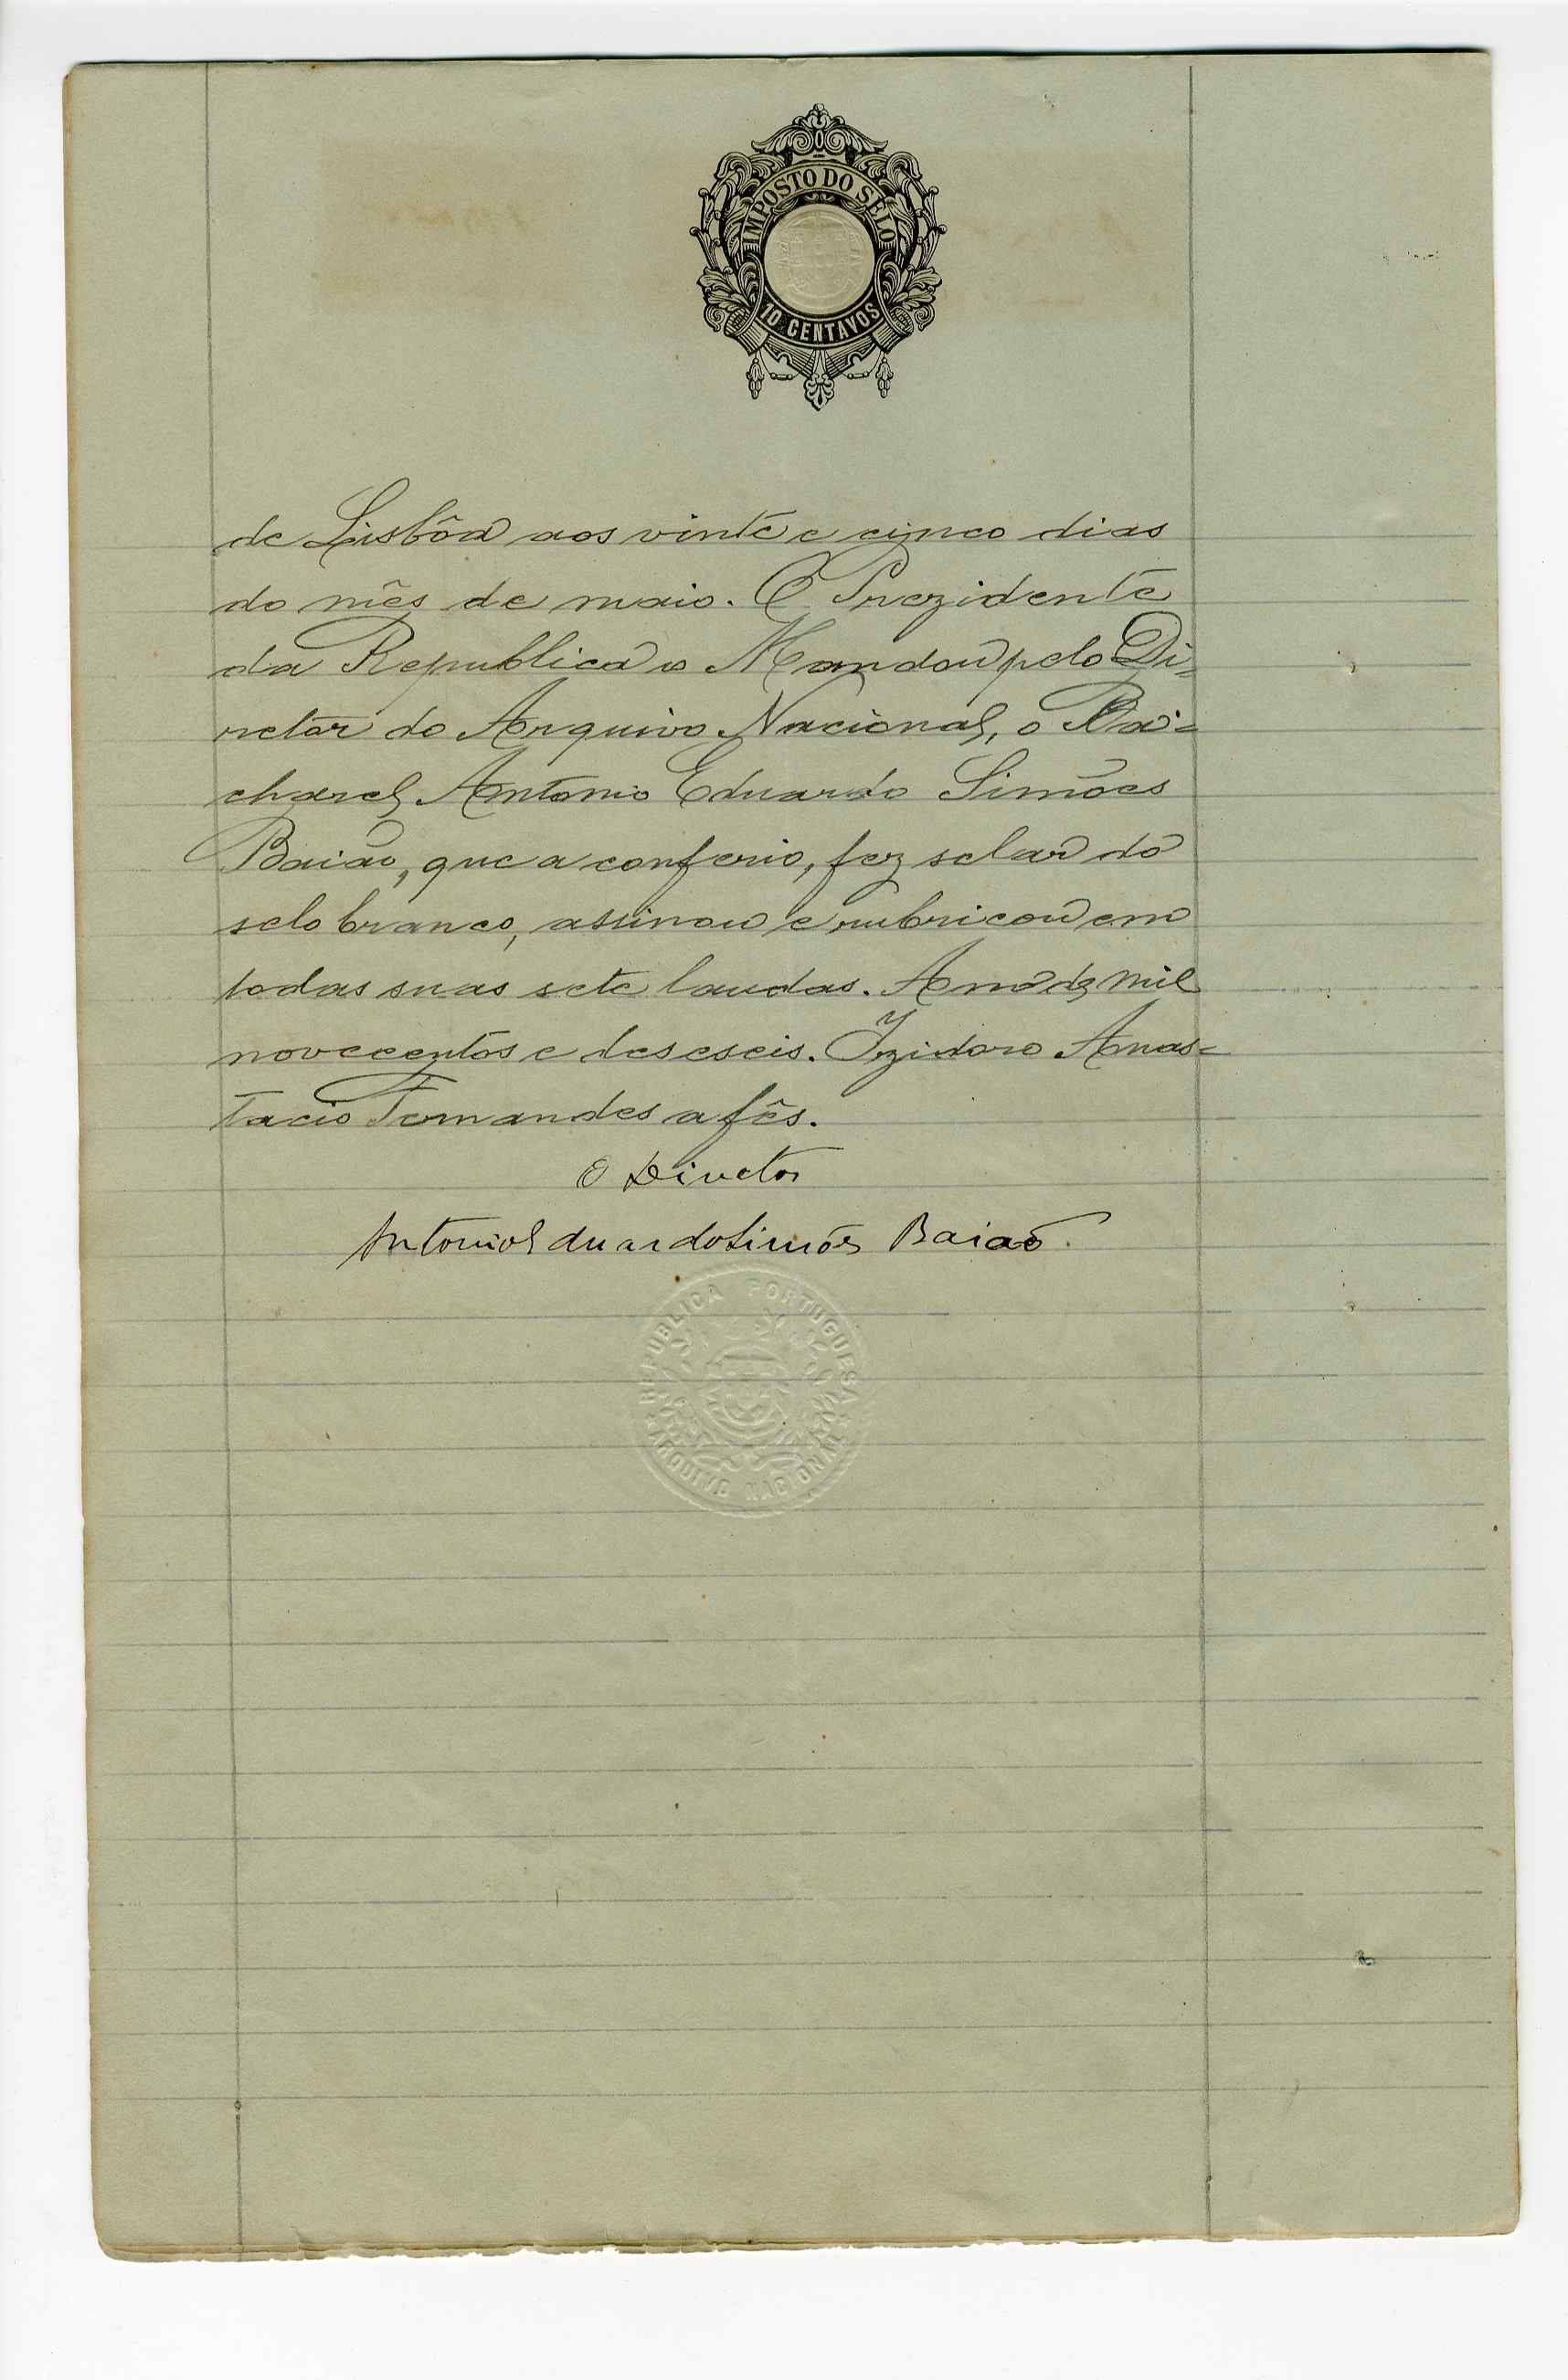 IMPOSTO DO SELO
10 CENTAVOS
de Lisbôa aos vinte e cinco dias
do mês de maio. O Prezidente
da Republica o Mandou pelo Di=
retor do Arquivo Nacional, o Ba=
charel Antonio Eduardo Simões
Baião, que a conferio, fez selar do
selo branco, assinou e rubricou em
todas suas sete laudas. Ano de mil
novecentos e deseseis. Izidoro Anas=
tacio Fernandes a fês.
O Director
Antonio Eduardo Simões Baião.
REPUBLICA PORTUGUESA
ARQUIVO NACIONAL